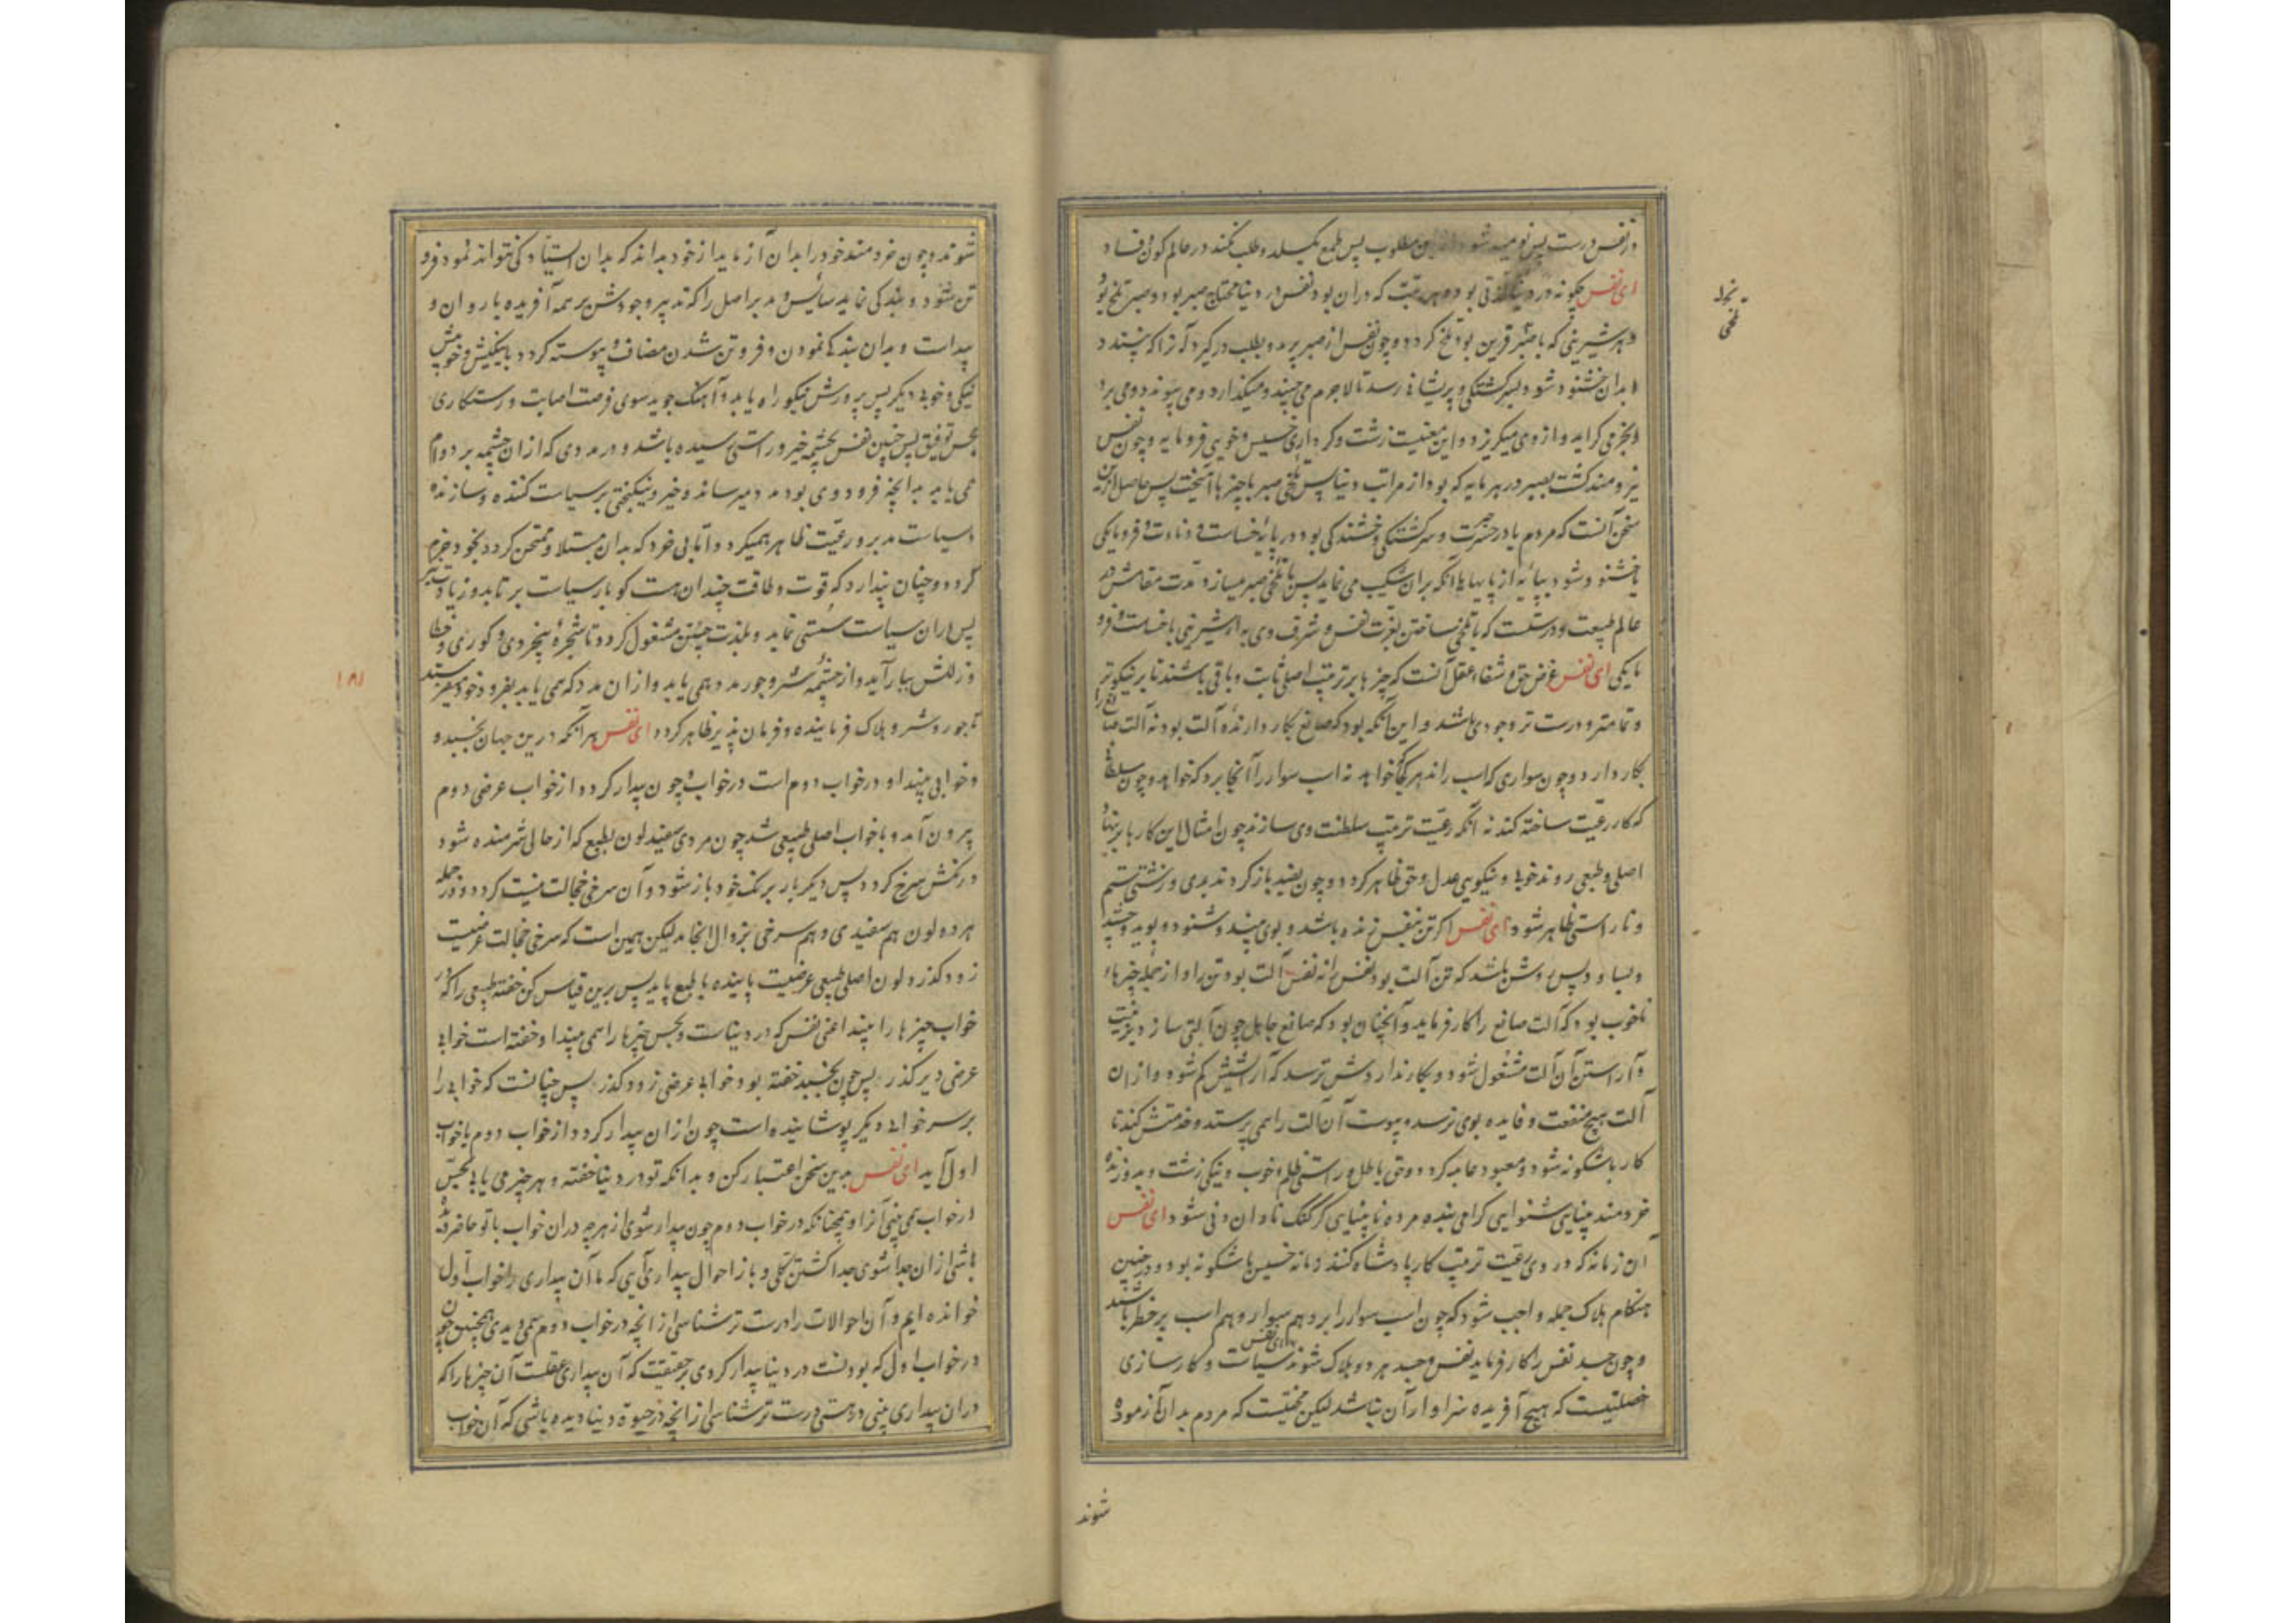 در نفس درست پس نومید شود از این مطلوب پس طمع بگسلد و طلب نکند در عالم کون و فساد
ای نفس چگونه در دنیا بود و هر رتبت که در آن بود نفس در دنیا محتاج صبر بود و صبر تلخ بود
و هر شیرینی که با صبر قرین بود تلخ گردد و چون نفس از صبر ببرد و طلب در گیرد آنرا که پسندد
و بدان خشنود شود بسرگشتگی و پریشانی رسد تا لاجرم می چیند و میگذارد و می پیوندد و می برد
می گراید و از وی میگریزد و این معنیست زشت و کرداری خسیس و خویی فرومایه و چون نفس
نیرومند گشت بصبر در هر مایه که بود از مراتب دنیا پس تلخی صبر با چیزها آمیخت پس حاصل این
سخن آنست که مردم یا در حسرت و سرگشتگی و خشندگی بود در پایه خساست و دناءت و فرومایگی
یا خشنود شود بپایه از پایها یا آنکه بر آن شکیب می نماید پس با تلخی صبر میسازد مدت مقامش در
عالم طبیعت و درستست که با تلخی ساختن بعزت نفس و شرف وی به از شیرینی با خساست و فرو
مایگی ای نفس غرض حق و شفاء عقل آنست که چیزها بر ترتیب اصلی ثابت و باقی باشند تا بر نیکوتر
و تمامتر و درست تر وجودی باشد و این آنگه بود که صانع بکار دارنده آلت بود نه آلت صانع را
بکار دارد و چون سواری که اسب راند هر کجا خواهد نه اسب سوار را آنجا برد که خواهد و چون سلطان
که کار رعیت ساخته کند نه آنکه رعیت ترتیب سلطنت وی سازند چون امثال این کارها بر بنیاد
اصلی و طبیعی روند خوبی و نیکویی عدل و حق ظاهر گردد و چون بضد باز گردند بدی و زشتی ستم
و ناراستی ظاهر شود ای نفس اگر تن بنفس زنده باشد و بوی بیند و شنود و بوید و چشد
و بساود پس روشن باشد که تن آلت بود نفس را نه نفس آلت بود تن را و از جمله چیزهاء
ناخوب بود که آلت صانع را کار فرماید و آنچنان بود که صانع جاهل چون آلتی سازد بزینت
و آراستن آن آلت مشغول شود و بکار نداردش ترسد که آرایشش کم شود و از آن
آلت هیچ منفعت و فایده بوی نرسد و پیوست آن آلت را همی پرستد و خدمتش کند تا
کار باشگونه شود و معبود عابد گردد و حق باطل و راستی ظلم و خوب و نیکی زشت و بد و زنده
خردمند بینای شنوای گرامی بنده مرده نابینای کر گنگ نادان دنی شود ای نفس
آن زمانه که در وی رعیت ترتیب کار پادشاه کنند زمانه خسیس باشگونه بود و در چنین
هنگام هلاک جمله واجب شود که چون اسب سوار را برد هم سوار و هم اسب بر خطر باشند
و چون جسد نفس را کار فرماید نفس و جسد هر دو هلاک شوند ای نفس سیاست و کارسازی
خصلتیست که هیچ آفریده سزاوار آن نباشد لیکن محنتیست که مردم بدان آزموده
شوند
شوند و چون خردمند خود را بدان آزماید از خود بداند که بدان ایستادگی نتواند نمود فرو
تن شود و بندگی نماید سایس و مدبر اصل را که تدبیر وجودش بر همه آفریده یار و ان و
پیداست و بدان بندگی نمودن و فروتن شدن مضاف و پیوسته گردد بانیکیش و خوبیش
نیکی و خوبی دیگر پس پرورش نیکو راه یابد و آهنگ جوید سوی فرصت اصابت و رستگاری
بحس توفیق پس چنین نفس بچشمه خیر و راستی رسیده باشد و در مددی که از آن چشمه بر دوام
می یابد بدانچه فرود وی بود مدد میرساند و خیر و نیکبختی بر سیاست کننده و سازنده
سیاست مدبر و رعیت ظاهر همیگردد اما بی خرد که بدان مبتلا و ممتحن گردد بخود خرم
گردد و چنان پندارد که قوت و طاقت چندان هست کو بار سیاست بر تابد و زیادت نیز
پس در آن سیاست سستی نماید و بلذت مشغول گردد تا شجره بیخردی و کوری و خطا
و زللش ببار آید و از چشمه شر و جور مدد همی یابد و از آن مدد که همی یابد بفرود خود همی فرستد
تا جور و شر و هلاک فرماینده و فرمان پذیر ظاهر گردد ای نفس هر آنکه درین جهان بخسبد و
و خوابی بیند او در خواب دوم است در خواب و چون بیدار گردد از خواب عرضی دوم
بیرون آمد و با خواب اصلی طبیعی شد چون مردی سفید لون بطبع که از حالی شرمنده شود
و رنگش سرخ گردد پس دیگر بار برنگ خود باز شود و آن سرخی خجالت نیست گردد و در جمله
هر دو لون هم سفیدی و هم سرخی بزوال انجامد لیکن همین است که سرخی خجالت عرضیست
زود گذر و لون اصلی طبیعی عرضیست پاینده با طبع پاید پس برین قیاس کن خفته طبیعی را که در
خواب چیزها را بیند اعنی نفس که در دنیاست و بحس چیزها را همی بیند او خفته است خوابی
عرضی دیر گذر پس چون بخسبد خفته بود خوابی عرضی زود گذر پس چنانست که خوابی را
بر سر خوابی دیگر پوشانیده است چون از آن بیدار گردد از خواب دوم با خواب
اول آید ای نفس بدین سخن اعتبار کن و بدانکه تو در دنیا خفته و هر چیز می یابی بحس
در خواب می بینی آنرا و همچنانکه در خواب دوم چون بیدار شوی از هر چه در آن خواب با تو حاضر شده
باشی از آن جدا شوی جدا گشتن کلی و باز احوال بیداری آیی که ما آن بیداری را خواب اول
خوانده ایم و آن احوالات را درست تر شناسی از آنچه در خواب دوم همی دیدی همچنین چون
در خواب اول که بودنت در دنیا بیدار گردی بر حقیقت که آن بیداری عقلست آن چیزها را که
در آن بیداری بینی در هستی درست تر شناسی از آنچه در حیوة دنیا دیده باشی که آن خواب